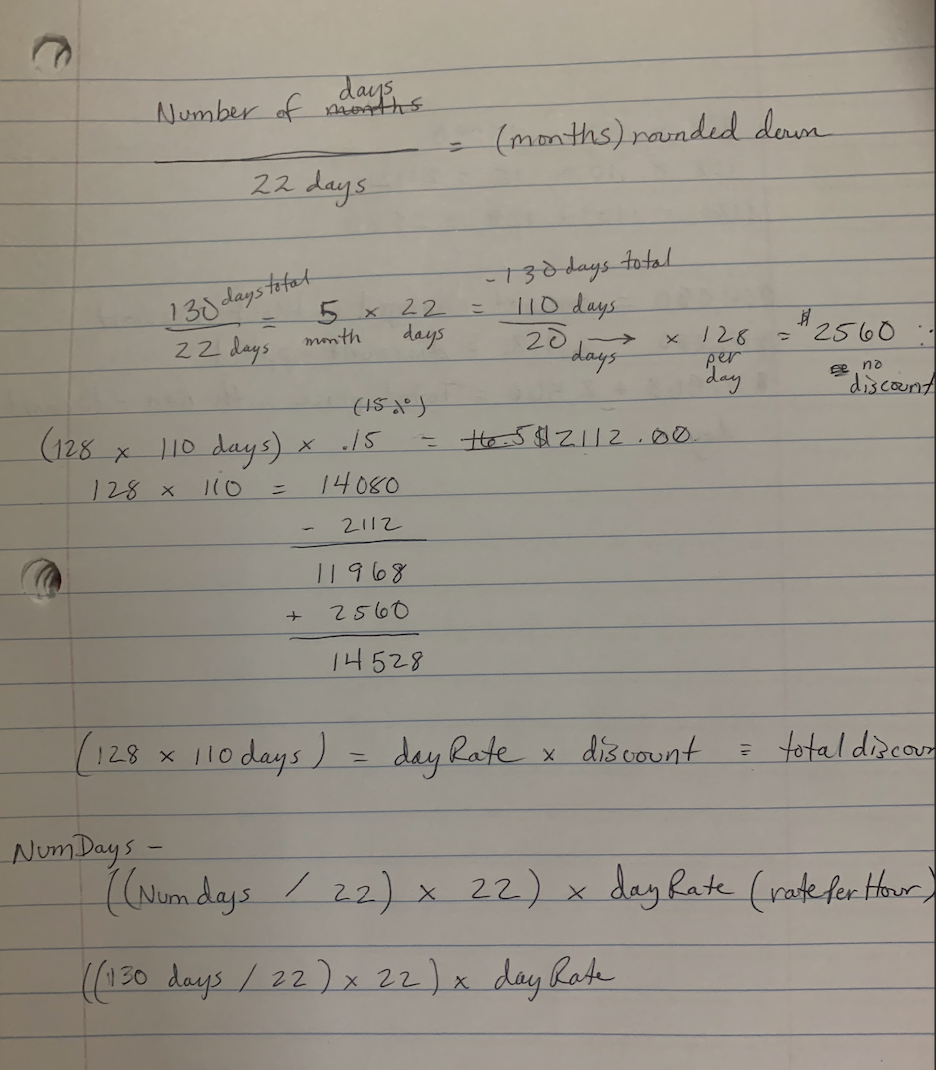 Number of months days
22 days
= (months) rounded down
130 days total
22 days
= 5 month × 22 days =
- 130 days total
110 days
20 days → × 128 per day = $2560 ∴
no discount
(15%)
(128 × 110 days) × .15 = $2112.00
128 × 110 = 14080
- 2112
11968
+ 2560
14528
(128 × 110 days) = dayRate × discount = total discoun
NumDays -
((Numdays / 22) × 22) × dayRate (ratePerHour)
((130 days / 22) × 22) × dayRate